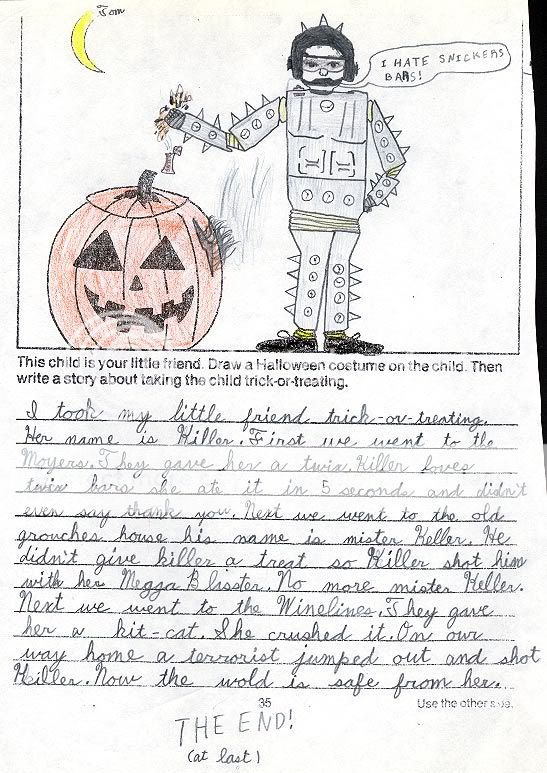 Tom
I HATE SNICKERS
BARS!
This child is your little friend. Draw a Halloween costume on the child. Then
write a story about taking the child trick-or-treating.
I took my little friend trick-or-treating.
Her name is Killer. First we went to the
Moyers. They gave her a twix. Killer loves
twix bars she ate it in 5 seconds and didn't
even say thank you. Next we went to the old
grouches house his name is mister Keller. He
didn't give killer a treat so Killer shot him
with her Megga Blasster. No more mister Keller.
Next we went to the Winelines. They gave
her a kit-cat. She crushed it. On our
way home a terrorist jumped out and shot
Killer. Now the wold is safe from her.
35
Use the other side.
THE END!
(at last)